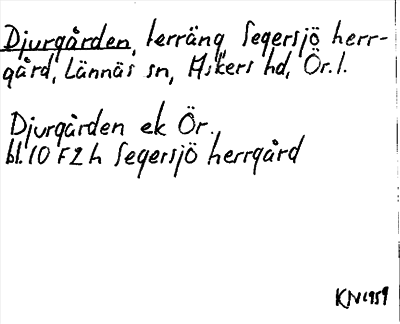 Djurgården, terräng Segersjö herr-
gård, Lännäs sn, Askers hd, Ör. l.
Djurgården ek Ör.,
bl. 10 F 2 h Segersjö herrgård
KN 1959